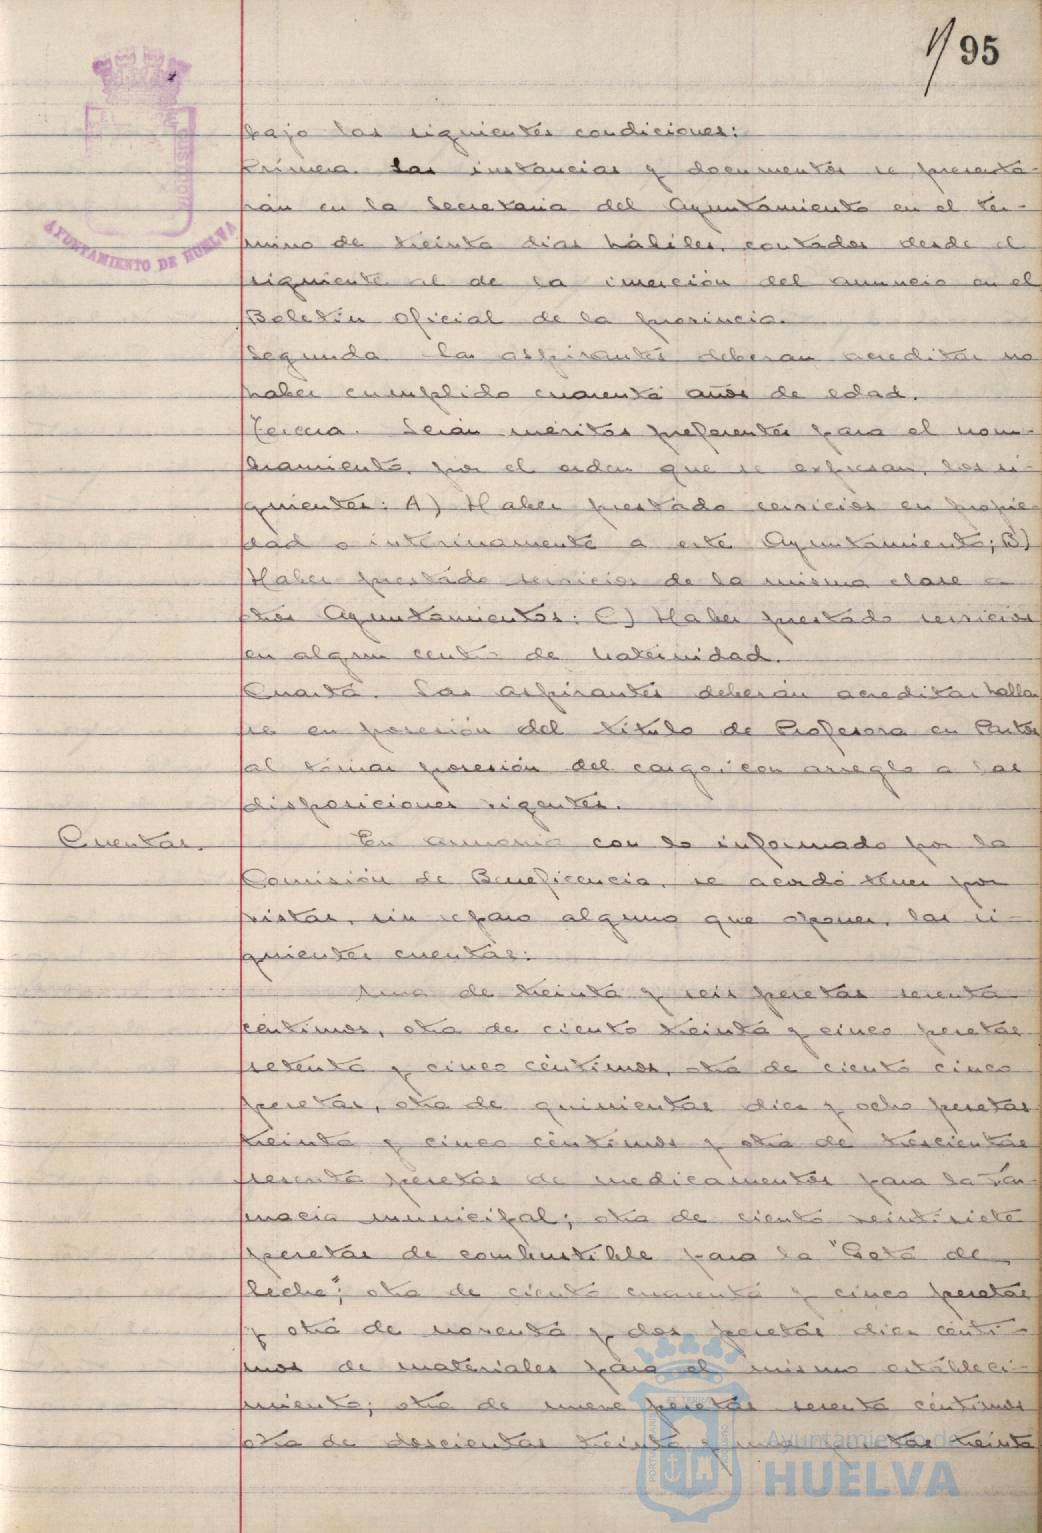 95
AYUNTAMIENTO DE HUELVA
bajo las siguientes condiciones:
Primera. Las instancias y documentos se presenta-
rán en la Secretaria del Ayuntamiento en el tér-
mino de treinta dias hábiles, contados desde el
siguiente al de la inserción del anuncio en el
Boletín Oficial de la provincia.
Segunda Las aspirantes deberan acreditar no
haber cumplido cuarenta años de edad.
Tercera. Serán méritos preferentes para el nom-
bramiento, por el orden que se expresan, los si-
guientes: A) Haber prestado servicios en propie-
dad o interinamente a este Ayuntamiento; B)
Haber prestado servicios de la misma clase a
otros Ayuntamientos; C) Haber prestado servicios
en algun centro de Maternidad.
Cuarta. Las aspirantes deberán acreditar hallar
se en posesión del título de Profesora en Partos
al tomar posesión del cargo, con arreglo a las
disposiciones vigentes.
Cuentas. En armonia con lo informado por la
Comisión de Beneficencia, se acordó tener por
vistas, sin reparo alguno que oponer, las si-
guientes cuentas:
Una de treinta y seis pesetas sesenta
céntimos, otra de ciento treinta y cinco pesetas
setenta y cinco céntimos, otra de ciento cinco
pesetas, otra de quinientas diez y ocho pesetas
treinta y cinco céntimos y otra de trescientas
sesenta pesetas de medicamentos para la Far-
macia municipal; otra de ciento veintisiete
pesetas de combustible para la "Gota de
leche"; otra de ciento cuarenta y cinco pesetas
y otra de noventa y dos pesetas diez cénti-
mos de materiales para el mismo estableci-
miento; otra de nueve pesetas sesenta céntimos
otra de doscientas treinta y una pesetas treinta
Ayuntamiento de
HUELVA